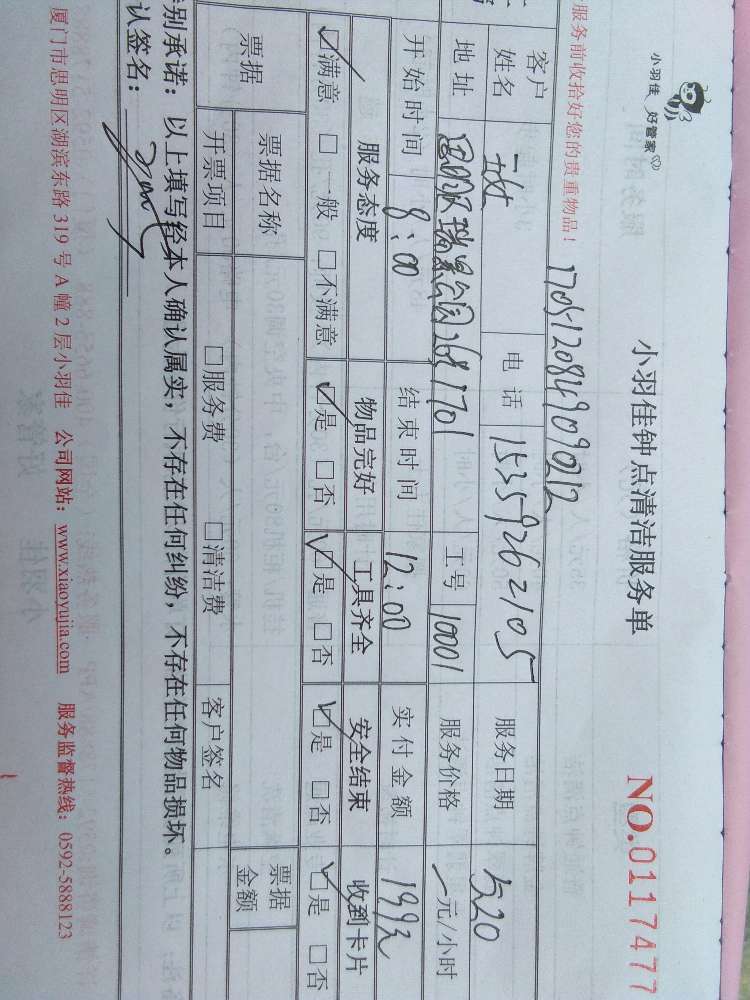 小羽佳 好管家
小羽佳钟点清洁服务单
NO.0117477
服务前收拾好您的贵重物品！
1705120849090212
客户姓名 电话 15359262105 服务日期 5.20
地址 思明区瑞景公园268 1701 工号 10001 服务价格 元/小时
开始时间 8:00 结束时间 12:00 实付金额 199元
服务态度 物品完好 工具齐全 安全结束 收到卡片
☑满意 □一般 □不满意 ☑是 □否 ☑是 □否 ☑是 □否 ☑是 □否
票据 票据名称 票据金额
开票项目 □服务费 □清洁费 客户签名
别承诺：以上填写经本人确认属实，不存在任何纠纷，不存在任何物品损坏。
认签名：
厦门市思明区湖滨东路 319 号 A 幢 2 层小羽佳 公司网站：www.xiaoyujia.com 服务监督热线：0592-5888123